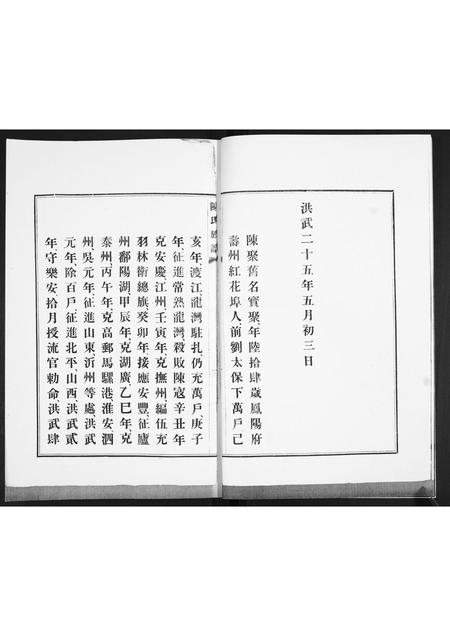 洪武二十五年五月初三日
陳聚舊名寳聚年陸拾肆歲鳳陽府
壽州紅花埠人前劉太保下萬戶己
亥年渡江龍灣駐扎仍充萬戶庚子
年征進常熟龍灣殺敗陳寇辛丑年
克安慶江州壬寅年克撫州編伍充
羽林衛總旗癸卯年接應安豐征廬
州鄱陽湖甲辰年克湖廣乙巳年克
泰州丙午年克高郵馬騾港淮安泗
州吳元年征進山東沂州等處洪武
元年除百戶征進北平山西洪武貳
年守樂安拾月授流官勅命洪武肆